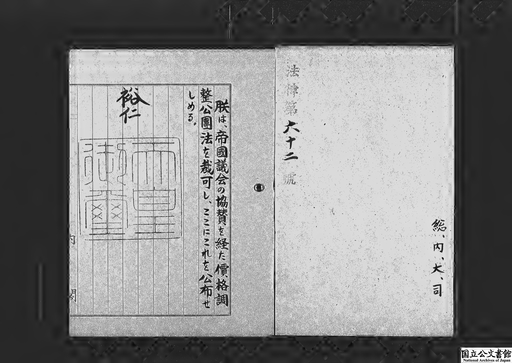 法律第六十二號
総、内、大、司
朕は、帝國議会の協賛を経た價格調
整公團法を裁可し、ここにこれを公布せ
しめる。
裕仁
天皇御璽
内閣
国立公文書館
National Archives of Japan